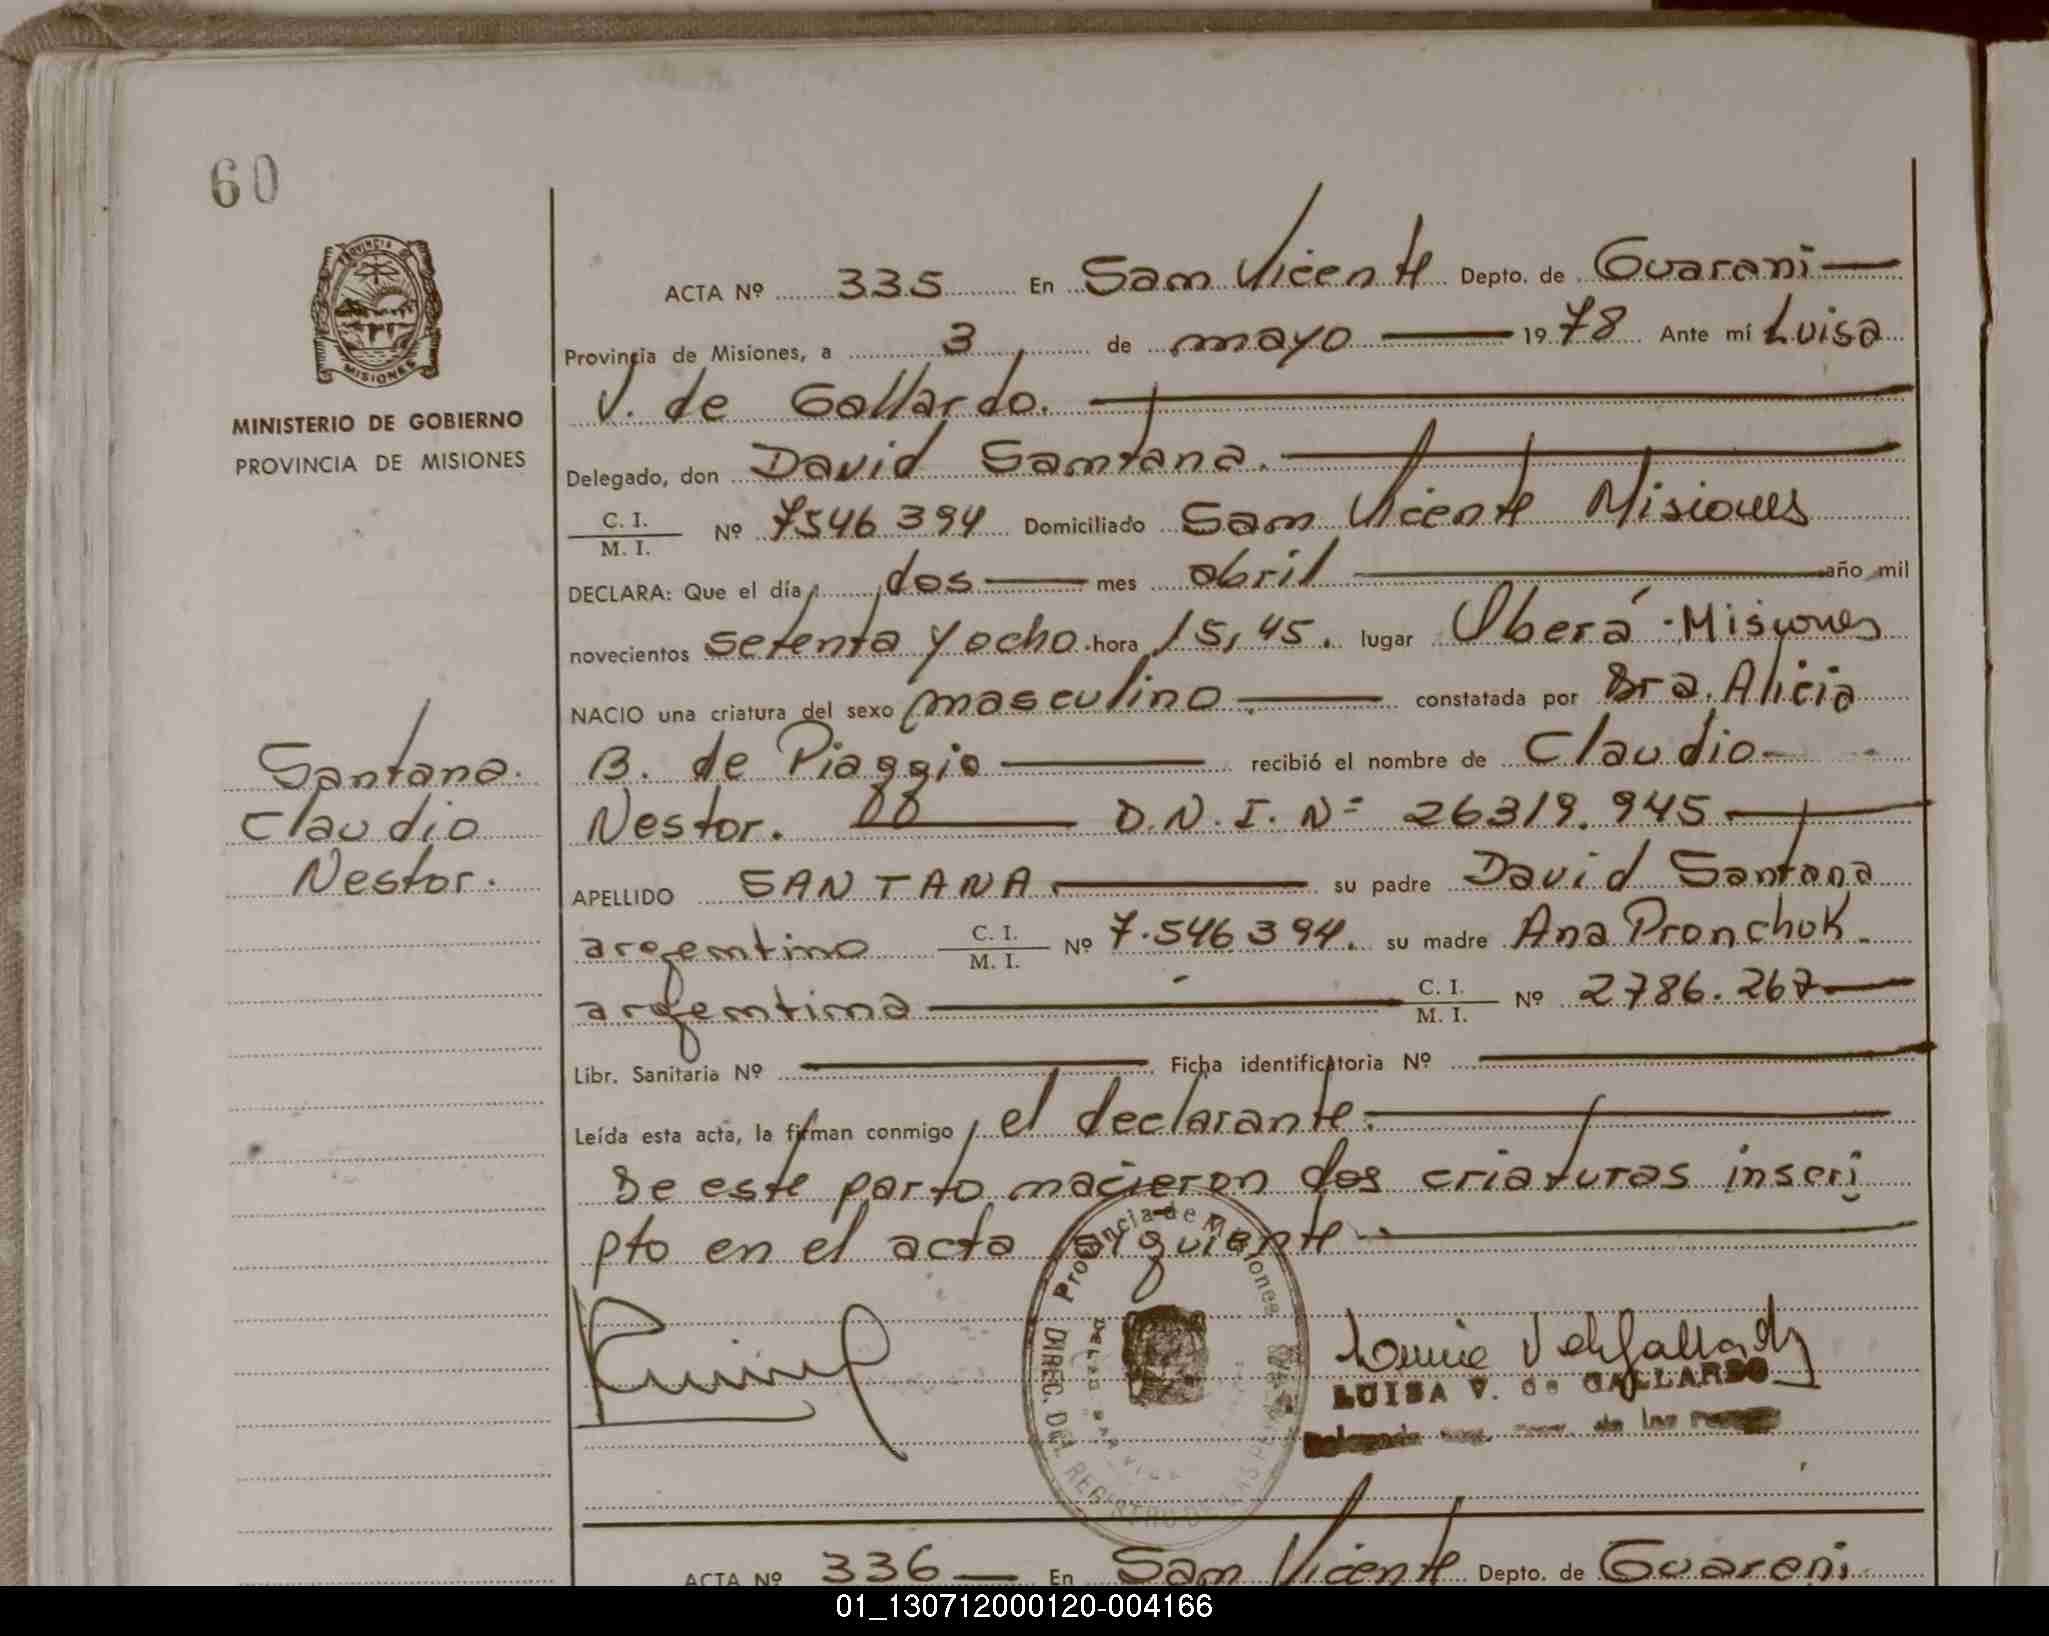 60
PROVINCIA
MISIONES
MINISTERIO DE GOBIERNO
PROVINCIA DE MISIONES
Santana.
Claudio
Nestor.
ACTA Nº 335 En San Vicente Depto. de Guarani
Provincia de Misiones, a 3 de mayo 1978 Ante mí Luisa
V. de Gallardo.
Delegado, don David Santana.
C. I. / M. I. Nº 7546394 Domiciliado San Vicente Misiones
DECLARA: Que el día dos mes abril año mil
novecientos setenta y ocho hora 15,45. lugar Oberá - Misiones
NACIO una criatura del sexo masculino constatada por Dra. Alicia
B. de Piaggio recibió el nombre de Claudio
Nestor. D.N.I. Nº 26319.945
APELLIDO SANTANA su padre David Santana
argentino C. I. / M. I. Nº 7.546394. su madre Ana Pronchuk
argentina C. I. / M. I. Nº 2786.267
Libr. Sanitaria Nº Ficha identificatoria Nº
Leída esta acta, la firman conmigo, el declarante.
De este parto nacieron dos criaturas inscri
pto en el acta siguiente
Provincia de Misiones
DIREC. DEL REGISTRO DE LAS PER
LUISA V. de GALLARDO
de las
ACTA Nº 336 En San Vicente Depto. de Guarani
01_130712000120-004166